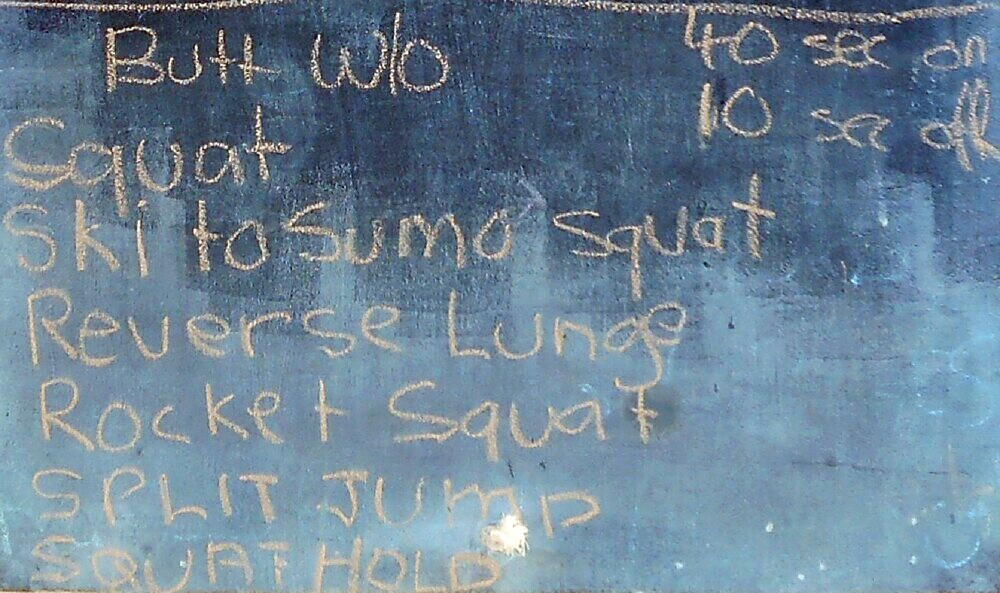 Butt w/o 40 sec on
10 sec off
Squat
Ski to Sumo Squat
Reverse Lunge
Rocket Squat
SPLIT JUMP
SQUAT HOLD